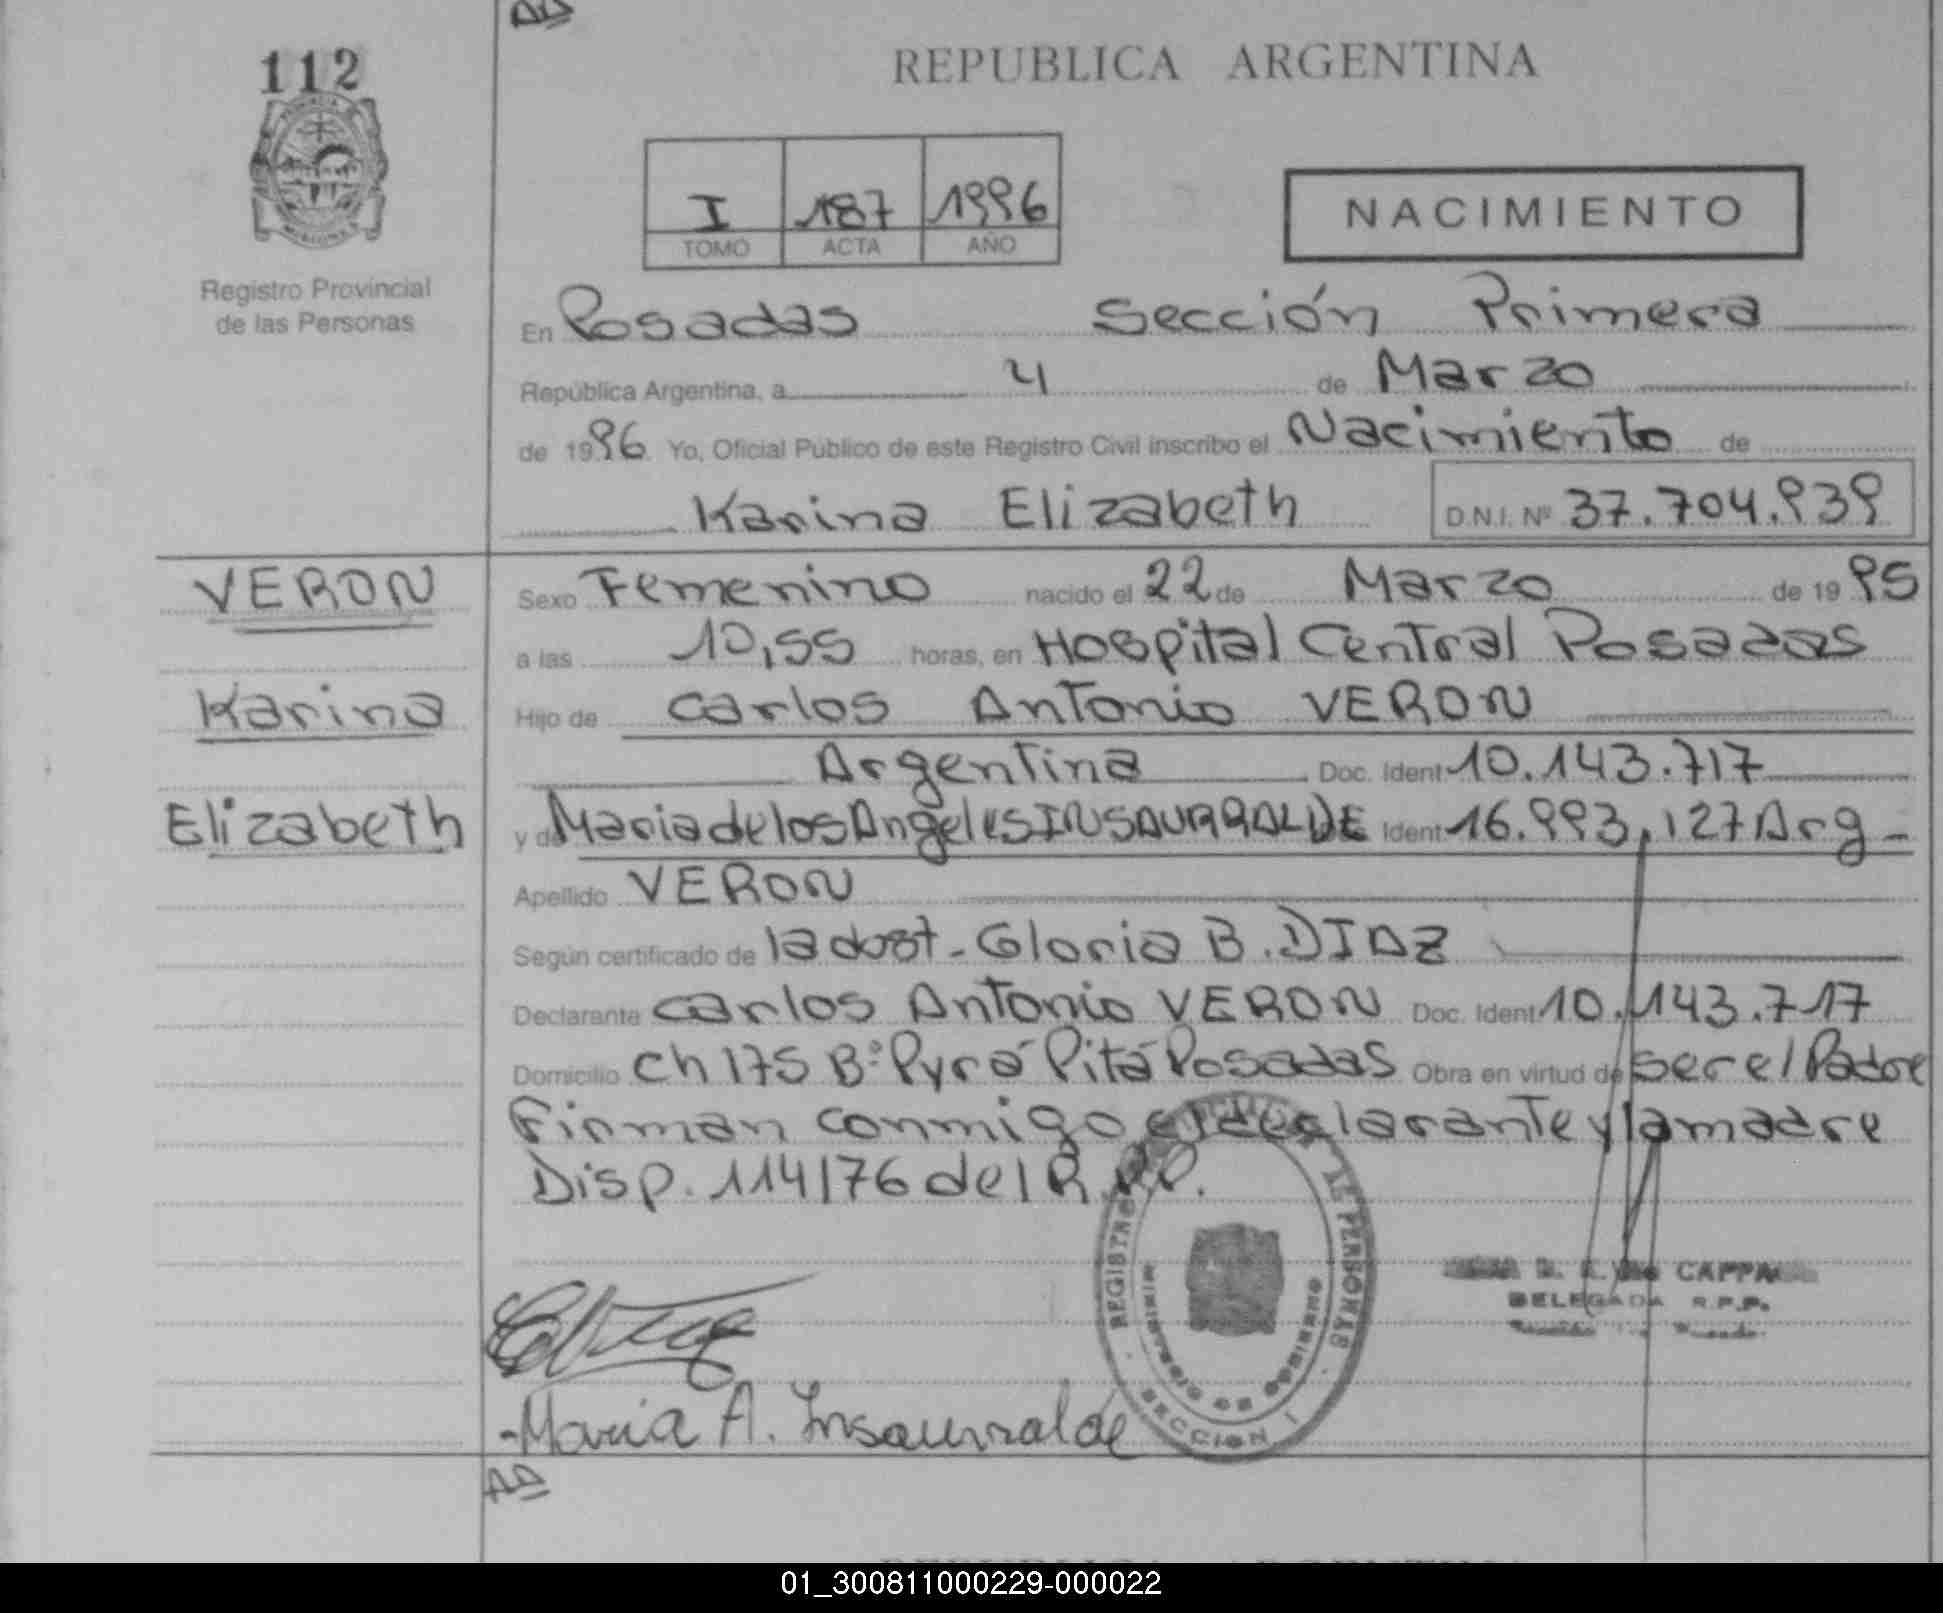 AD
112
REPUBLICA ARGENTINA
I 187 1996
TOMO ACTA AÑO
NACIMIENTO
Registro Provincial
de las Personas
En Posadas Sección Primera
República Argentina, a 4 de Marzo
de 1996 Yo, Oficial Público de este Registro Civil inscribo el Nacimiento de
Karina Elizabeth D.N.I. Nº 37.704.939
VERON
Sexo Femenino nacido el 22 de Marzo de 1995
a las 10,55 horas, en Hospital Central Posadas
Karina
Hijo de Carlos Antonio VERON
Argentina Doc. Ident 10.143.717
Elizabeth
y de Maria de los Angeles INSAURRALDE Ident 16.993,127 Arg
Apellido VERON
Según certificado de la obst - Gloria B. DIAZ
Declarante Carlos Antonio VERON Doc. Ident 10.143.717
Domicilio Ch 175 Bº Pyrá Pitá Posadas Obra en virtud de ser el Padre
Firman conmigo el declarante y la madre
Disp. 114/76 del R.P.P.
REGISTRO PERSONAS
MINISTERIO DE GOBIERNO
SECCION I
CAPPA
DELEGADA R.P.P.
Maria A. Insaurralde
AD
REPUBLICA ARGENTINA
01_300811000229-000022